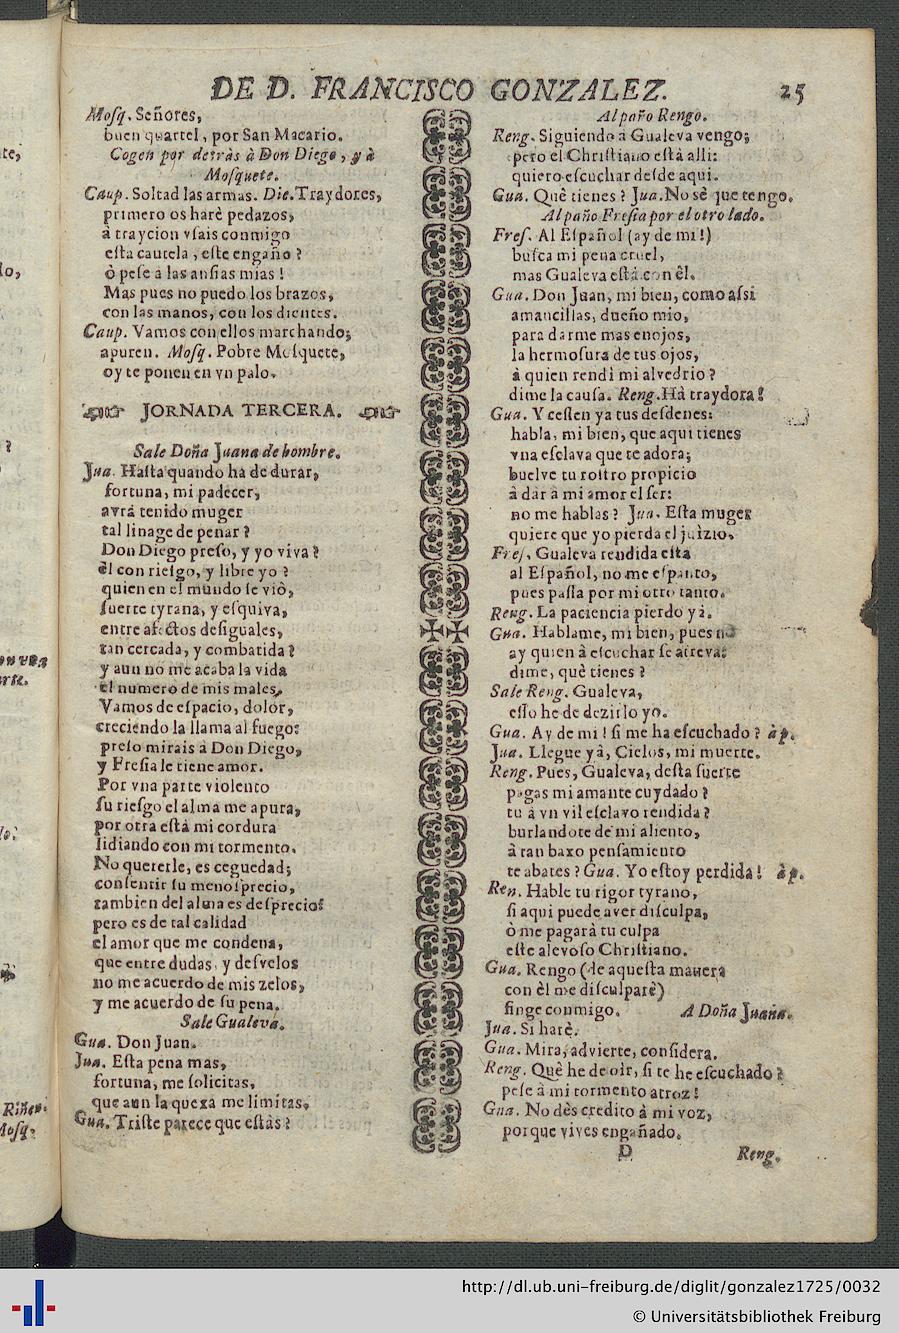 DE D. FRANCISCO GONZALEZ. 25
Mosq. Señores,
buen quartel, por San Macario.
Cogen por detràs à Don Diego, y à
Mosquete.
Caup. Soltad las armas. Die. Traydores,
primero os harè pedazos,
à traycion vsais conmigo
esta cautela, este engaño?
ò pese à las ansias mias!
Mas pues no puedo los brazos,
con las manos, con los dientes.
Caup. Vamos con ellos marchando;
apuren. Mosq. Pobre Mosquete,
oy te ponen en vn palo.
JORNADA TERCERA.
Sale Doña Juana de hombre.
Jua. Hasta quando ha de durar,
fortuna, mi padecer,
avrá tenido muger
tal linage de penar?
Don Diego preso, y yo viva?
èl con riesgo, y libre yo?
quien en el mundo se viò,
suerte tyrana, y esquiva,
entre afectos desiguales,
tan cercada, y combatida?
y aun no me acaba la vida
el numero de mis males,
Vamos de espacio, dolor,
creciendo la llama al fuego:
preso mirais à Don Diego,
y Fresia le tiene amor.
Por vna parte violento
su riesgo el alma me apura,
por otra està mi cordura
lidiando con mi tormento.
No quererle, es ceguedad;
consentir su menosprecio,
tambien del alma es desprecio:
pero es de tal calidad
el amor que me condena,
que entre dudas, y desvelos
no me acuerdo de mis zelos,
y me acuerdo de su pena.
Sale Gualeva.
Gua. Don Juan.
Jua. Esta pena mas,
fortuna, me solicitas,
que aun la quexa me limitas,
Gua. Triste parece que estàs?
Al paño Rengo.
Reng. Siguiendo à Gualeva vengo;
pero el Christiano està alli:
quiero escuchar desde aqui.
Gua. Què tienes? Jua. No sè que tengo.
Al paño Fresia por el otro lado.
Fres. Al Español (ay de mi!)
busca mi pena cruel,
mas Gualeva està con èl.
Gua. Don Juan, mi bien, como assi
amancillas, dueño mio,
para darme mas enojos,
la hermosura de tus ojos,
à quien rendi mi alvedrio?
dime la causa. Reng. Hà traydora!
Gua. Y cessen ya tus desdenes:
habla, mi bien, que aqui tienes
vna esclava que te adora;
buelve tu rostro propicio
à dàr à mi amor el ser:
no me hablas? Jua. Esta muger
quiere que yo pierda el juizio.
Fres. Gualeva rendida està
al Español, no me espanto,
pues passa por mi otro tanto.
Reng. La paciencia pierdo yà.
Gua. Hablame, mi bien, pues no
ay quien à escuchar se atreva:
dime, què tienes?
Sale Reng. Gualeva,
esso he de dezirlo yo.
Gua. Ay de mi! si me ha escuchado? àp.
Jua. Llegue yà, Cielos, mi muerte.
Reng. Pues, Gualeva, desta suerte
pagas mi amante cuydado?
tu à vn vil esclavo rendida?
burlandote de mi aliento,
à tan baxo pensamiento
te abates? Gua. Yo estoy perdida! àp.
Ren. Hable tu rigor tyrano,
si aqui puede aver disculpa,
ò me pagarà tu culpa
este alevoso Christiano.
Gua. Rengo (de aquesta manera
con èl me disculparè)
finge conmigo. A Doña Juana.
Jua. Si harè.
Gua. Mira, advierte, considera.
Reng. Què he de oir, si te he escuchado?
pese à mi tormento atroz!
Gua. No dès credito à mi voz,
porque vives engañado.
D Reng.
http://dl.ub.uni-freiburg.de/diglit/gonzalez1725/0032
© Universitätsbibliothek Freiburg